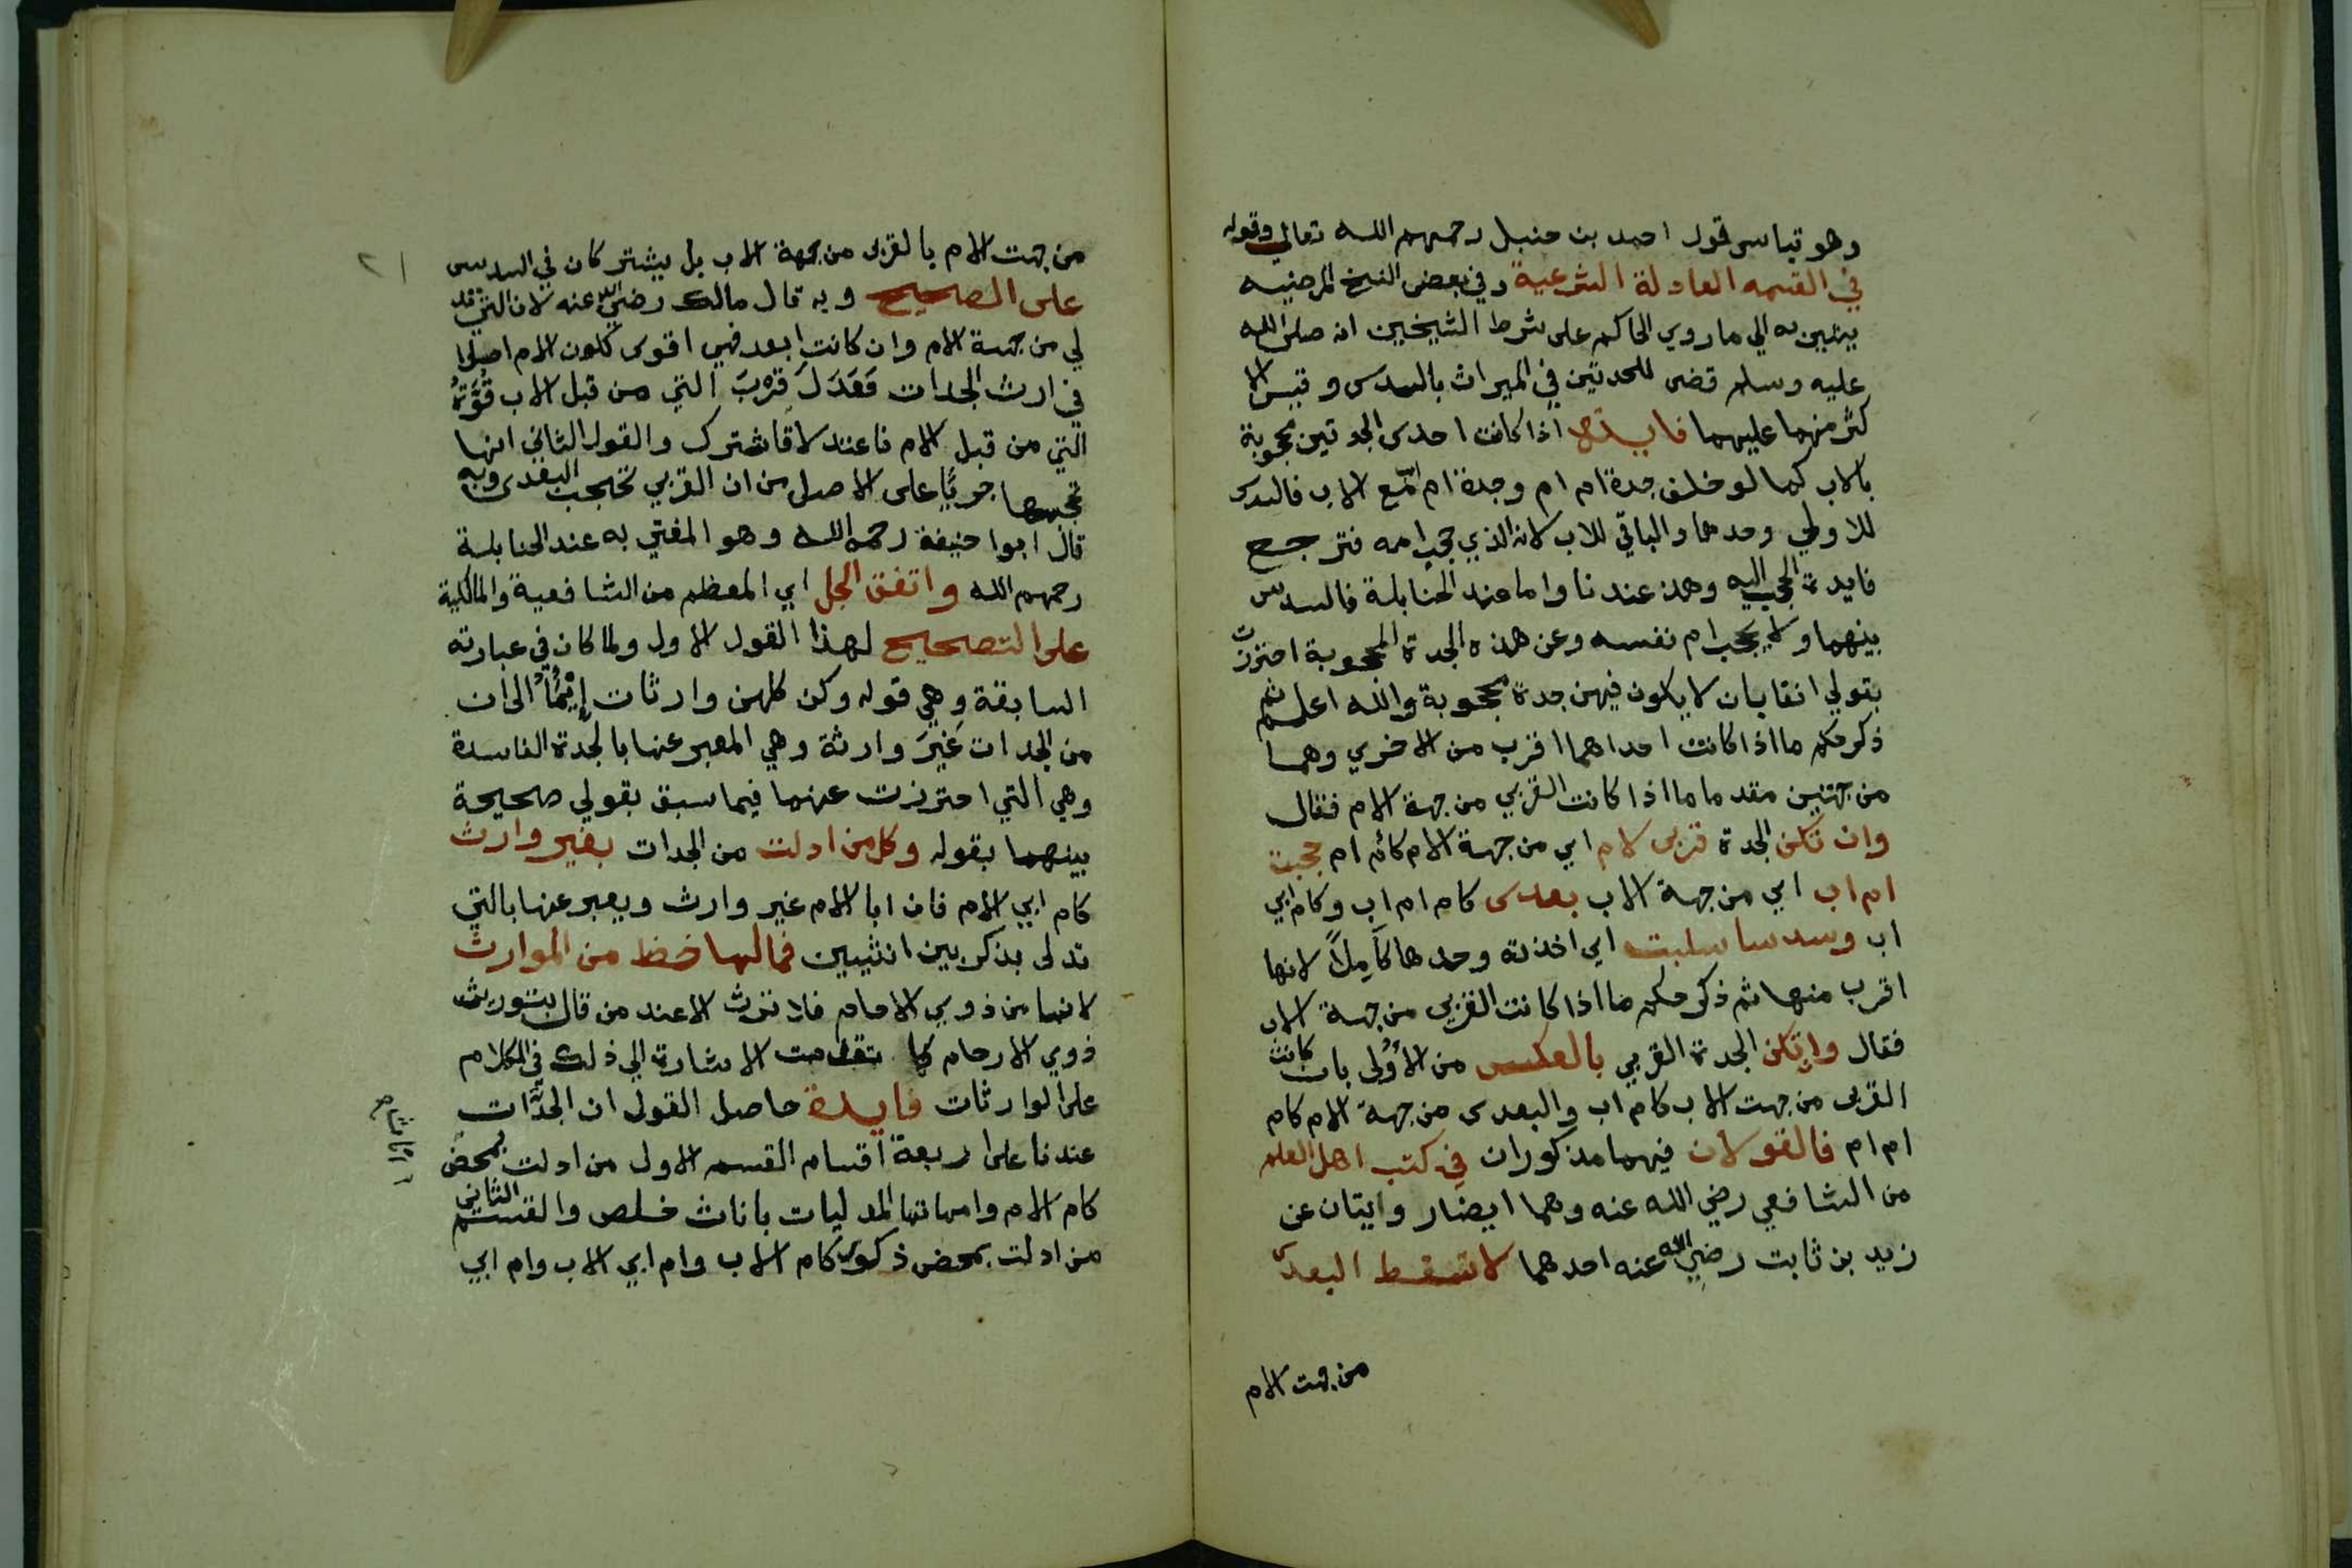 وهو قياس قول احمد بن حنبل رحمهم الله تعالي وقوله
في القسمه العادلة الشرعية وفي بعض النسخ المرضيه
به الي ما روي الحاكم على شرط الشيخين انه صلى الله
عليه وسلم قضى للجدتين في الميراث بالسدس وقيس الا
كثر منهما عليهما فايدة اذا كانت احدى الجدتين محجوبة
بالاب كما لو خلف جدة ام ام وجدة ام اب مع الاب فالسدس
للاولي وحدها والباقي للاب لانه الذي حجب امه فترجع
فايدة الحجب اليه وهذا عندنا واما عند الحنابلة فالسدس
بينهما ولا يحجب ام نفسه وعن هذه الجدة المحجوبة احترزت
بقولي انفا بان لا يكون فيهن جدة محجوبة والله اعلم ثم
ذكر حكم ما اذا كانت احداهما اقرب من الاخري وهما
من جهتين مقدما ما اذا كانت القربي من جهة الام فقال
وان تكن الجدة قربى لام اي من جهة الام كام ام حجبت
ام اب اي من جهة الاب بعدى كام ام اب وكام ابي
اب وسدسا سلبت اي اخذته وحدها كاملاً لانها
اقرب منها ثم ذكر حكم ما اذا كانت القربي من جهة الاب
فقال وان تكن الجدة القربي بالعكس من الأولى بان كانت
القربى من جهت الاب كام اب والبعدى من جهة الام كام
ام ام فالقولان فيهما مذكوران في كتب اهل العلم
من الشافعي رضي الله عنه وهما ايضا روايتان عن
زيد بن ثابت رضي الله عنه احدهما لا تسقط البعدى
من جهت الام
٢١
من جهت الام بالقربى من جهة الاب بل يشتركان في السدس
على الصحيح وبه قال مالك رضي الله عنه لان التي تد
لي من جهة الام وان كانت ابعد فهي اقوى لكون الام اصلا
في ارث الجدات فَعَدَلَ قرب التي من قبل الاب قُوَّةُ
التي من قبل الام فاعتدلا فاشتركا والقول الثاني انها
تحجبها جريًا على الاصل من ان القربي تحجب البعدى وبه
قال ابوا حنيفة رحمه الله وهو المفتي به عند الحنابلة
رحمهم الله واتفق الجل اي المعظم من الشافعية والمالكية
على التصحيح لهذا القول الاول ولما كان في عبارته
السابقة وهي قوله وكن كلهن وارثات إيمآ الى ان
من الجدات غَيْرَ وارثة وهي المعبر عنها بالجدة الفاسدة
وهي التي احترزت عنها فيما سبق بقولي صحيحة
بينهما بقوله وكل من ادلت من الجدات بغير وارث
كام ابي الام فان ابا الام غير وارث ويعبر عنها بالتي
تدلى بذكر بين انثيين فمالها حظ من الموارث
لانها من ذوي الارحام فلا ترث الا عند من قال بتوريث
ذوي الارحام كما تقدمت الاشارة الي ذلك في الكلام
على الوارثات فايدة حاصل القول ان الجدَّات
عندنا على اربعة اقسام القسم الاول من ادلت بمحض
كام الام وامهاتها المدليات باناث خلص والقسم الثاني
من ادلت بمحض ذكور كام الاب وام ابي الاب وام ابي